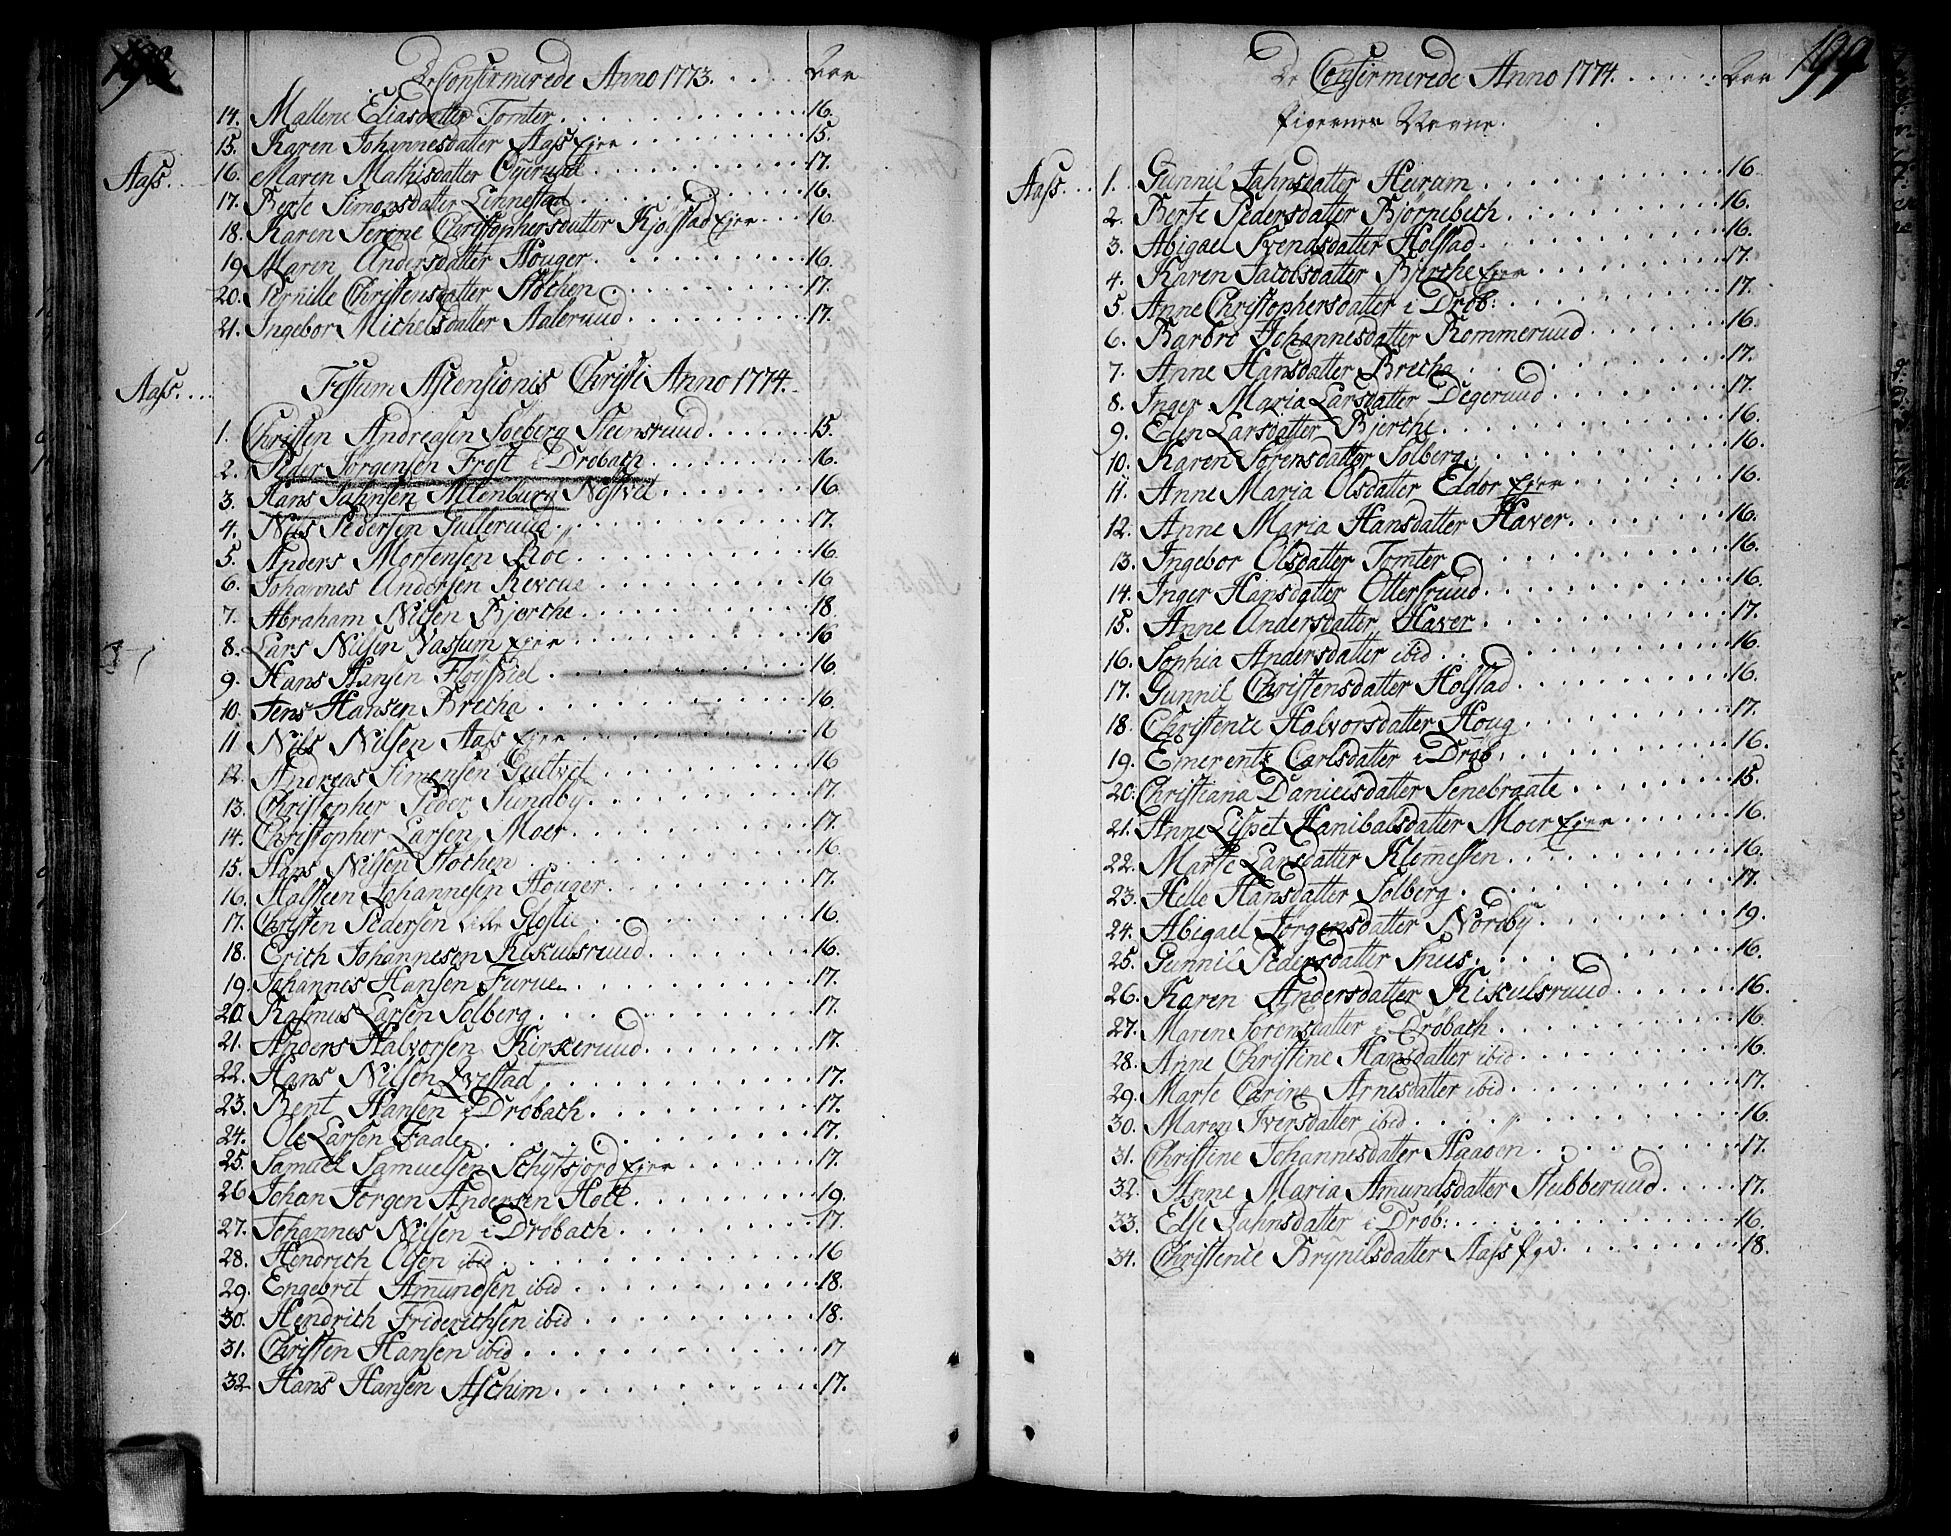 De Confirmerede Anno 1773. Aar
14. Mallene Eliasdatter Tomter 16.
15. Karen Johannesdatter Aass Ejer 15.
Aass. 16. Maren Mathisdatter Ogerud 17.
17. Berte Simonsdatter Linnestad 16.
18. Karen Serene Christophersdatter Kjølstad Ejer 16.
19. Maren Andersdatter Houger 16.
20. Pernille Christensdatter Stochen 17.
21. Ingebor Michelsdatter Aaleruud 17.
Aass. Festum Ascensionis Christi Anno 1774.
1. Christen Andreasen Soeberg Steinsruud 15.
2. Peder Jørgensen Frost i Drøbach 16.
3. Hans Jahnsen Altenburg Nøstvet 16.
4. Nils Pedersen Gulleruud 17.
5. Anders Mortensen Roe 16.
6. Johannes Andersen Revoue 16
7. Abraham Nilsen Bjerche 18.
8. Lars Nilsen Vassum Ejer 16
9. Hans Hansen Fløyspiel 16.
10. Jens Hansen Brecha 16.
11 Nils Nilsen Aass Ejer 16
12. Andreas Simensen Gultvet 16
13. Christopher Peder Sundby 17.
14. Christopher Larsen Moer 17.
15. Hans Nilsen Stochen 16.
16. Halsteen Johannesen Houger 17.
17. Christen Pedersen Lille Glosli 16.
18. Erich Johannesen Kikulsruud 16.
19. Johannes Hansen Furue 17.
20. Rasmus Larsen Solberg 17.
21. Anders Halvorsen Kirkeruud 17.
22. Hans Nilsen Ivestad 17.
23. Bent Hansen i Drøbach 17.
24. Ole Larsen Faale 17.
25. Samuel Samuelsen Schytsjord Ejer 17.
26. Johan Jørgen Andersen Holt 19.
27. Johannes Nilsen i Drøbach 17.
28. Hendrich Olsen ibid 16
29. Engebret Amundsen ibid 18.
30. Hendrich Friderichsen ibid 18.
31. Christen Hansen ibid 17
32. Hans Hansen Aschim 17.
199
De Confirmerede Anno 1774. Aar
Pigernes Navne.
Aass. 1. Gunnil Jahnsdatter Huram 16
2. Berte Pedersdatter Bjørnebech 16.
3. Abigael Svendsdatter Holstad 16.
4. Karen Jacobsdatter Bjerche Ejer 17.
5. Anne Christophersdatter i Drøb: 17.
6. Barbro Johannesdatter Rommeruud 16.
7. Anne Hansdatter Brecha 17.
8. Inger Maria Larsdatter Degeruud 17.
9. Elen Larsdatter Bjerche 16.
10. Karen Sørensdatter Solberg 16.
11. Anne Maria Olsdatter Eldor Ejer 16.
12. Anne Maria Hansdatter Haver 16.
13. Ingebor Olsdatter Tomter 16.
14. Inger Hansdatter Ottersruud 16.
15. Anne Andersdatter Haver 17.
16. Sophia Andersdatter ibid 16.
17. Gunnil Christensdatter Holstad 16.
18. Christence Halvorsdatter Houg 17.
19. Emerents Carlsdatter i Drøb. 16.
20. Christiana Danielsdatter Senebraate 15.
21. Anne Lispet Hanibalsdatter Moer Ejer 16.
22. Marte Larsdatter Klemessen 16.
23. Helle Hansdatter Solberg 17.
24. Abigael Jørgensdatter Nordby 19.
25. Gunnil Pedersdatter Snees 16.
26. Karen Andersdatter Kikulsruud 16.
27. Maren Sørensdatter i Drøbach 16.
28. Anne Christine Hansdatter ibid 16.
29. Marte Carine Arnesdatter ibid 17.
30. Maren Iversdatter ibid 16.
31. Christine Johannesdatter Haaøen 17.
32. Anne Maria Amundsdatter Stubberuud 17.
33. Else Jahnsdatter i Drøb: 16.
34. Christence Brynilsdatter Aass Egd. 18.